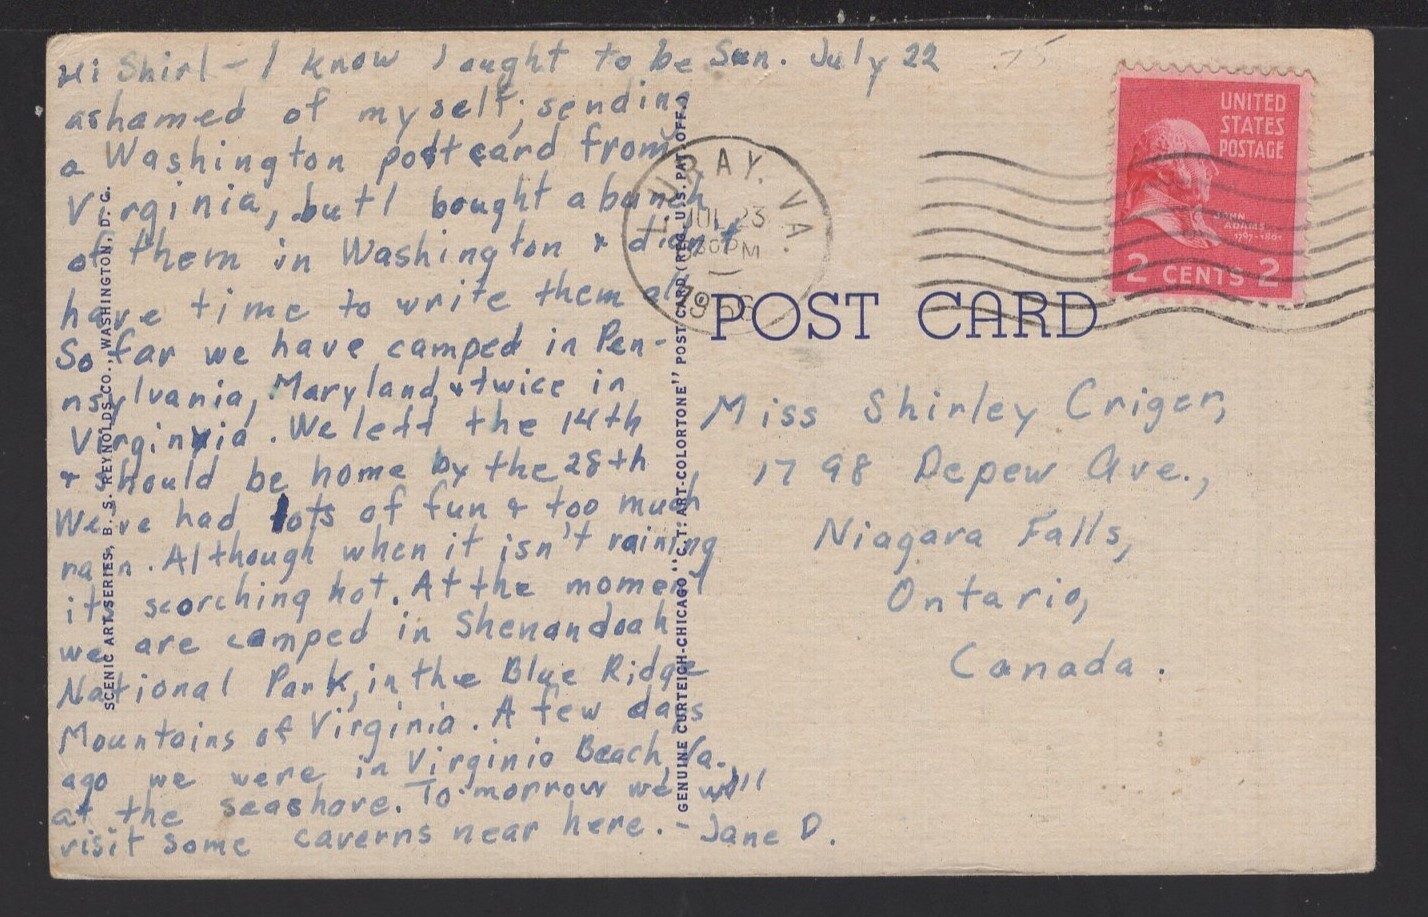 Sun. July 22
Hi Shirl - I know I ought to be
ashamed of myself, sending
a Washington postcard from
Virginia, but I bought a bunch
of them in Washington & didn't
have time to write them all.
So far we have camped in Pen-
nsylvania, Maryland, & twice in
Virginia. We left the 14th
& should be home by the 28th
We've had lots of fun & too much
rain. Although when it isn't raining
its scorching hot. At the moment
we are camped in Shenandoah
National Park, in the Blue Ridge
Mountains of Virginia. A few days
ago we were in Virginia Beach, Va.,
at the seashore. To-morrow we will
visit some caverns near here. - Jane D.
SCENIC ART SERIES, B. S. REYNOLDS CO., WASHINGTON, D. C.
GENUINE CURTEICH-CHICAGO "C. T. ART-COLORTONE" POST CARD (REG. U.S. PAT. OFF.)
LURAY. VA.
JUL 23
PM
POST CARD
UNITED
STATES
POSTAGE
JOHN
ADAMS
2 CENTS 2
Miss Shirley Criger,
1798 Depew Ave.,
Niagara Falls,
Ontario,
Canada.